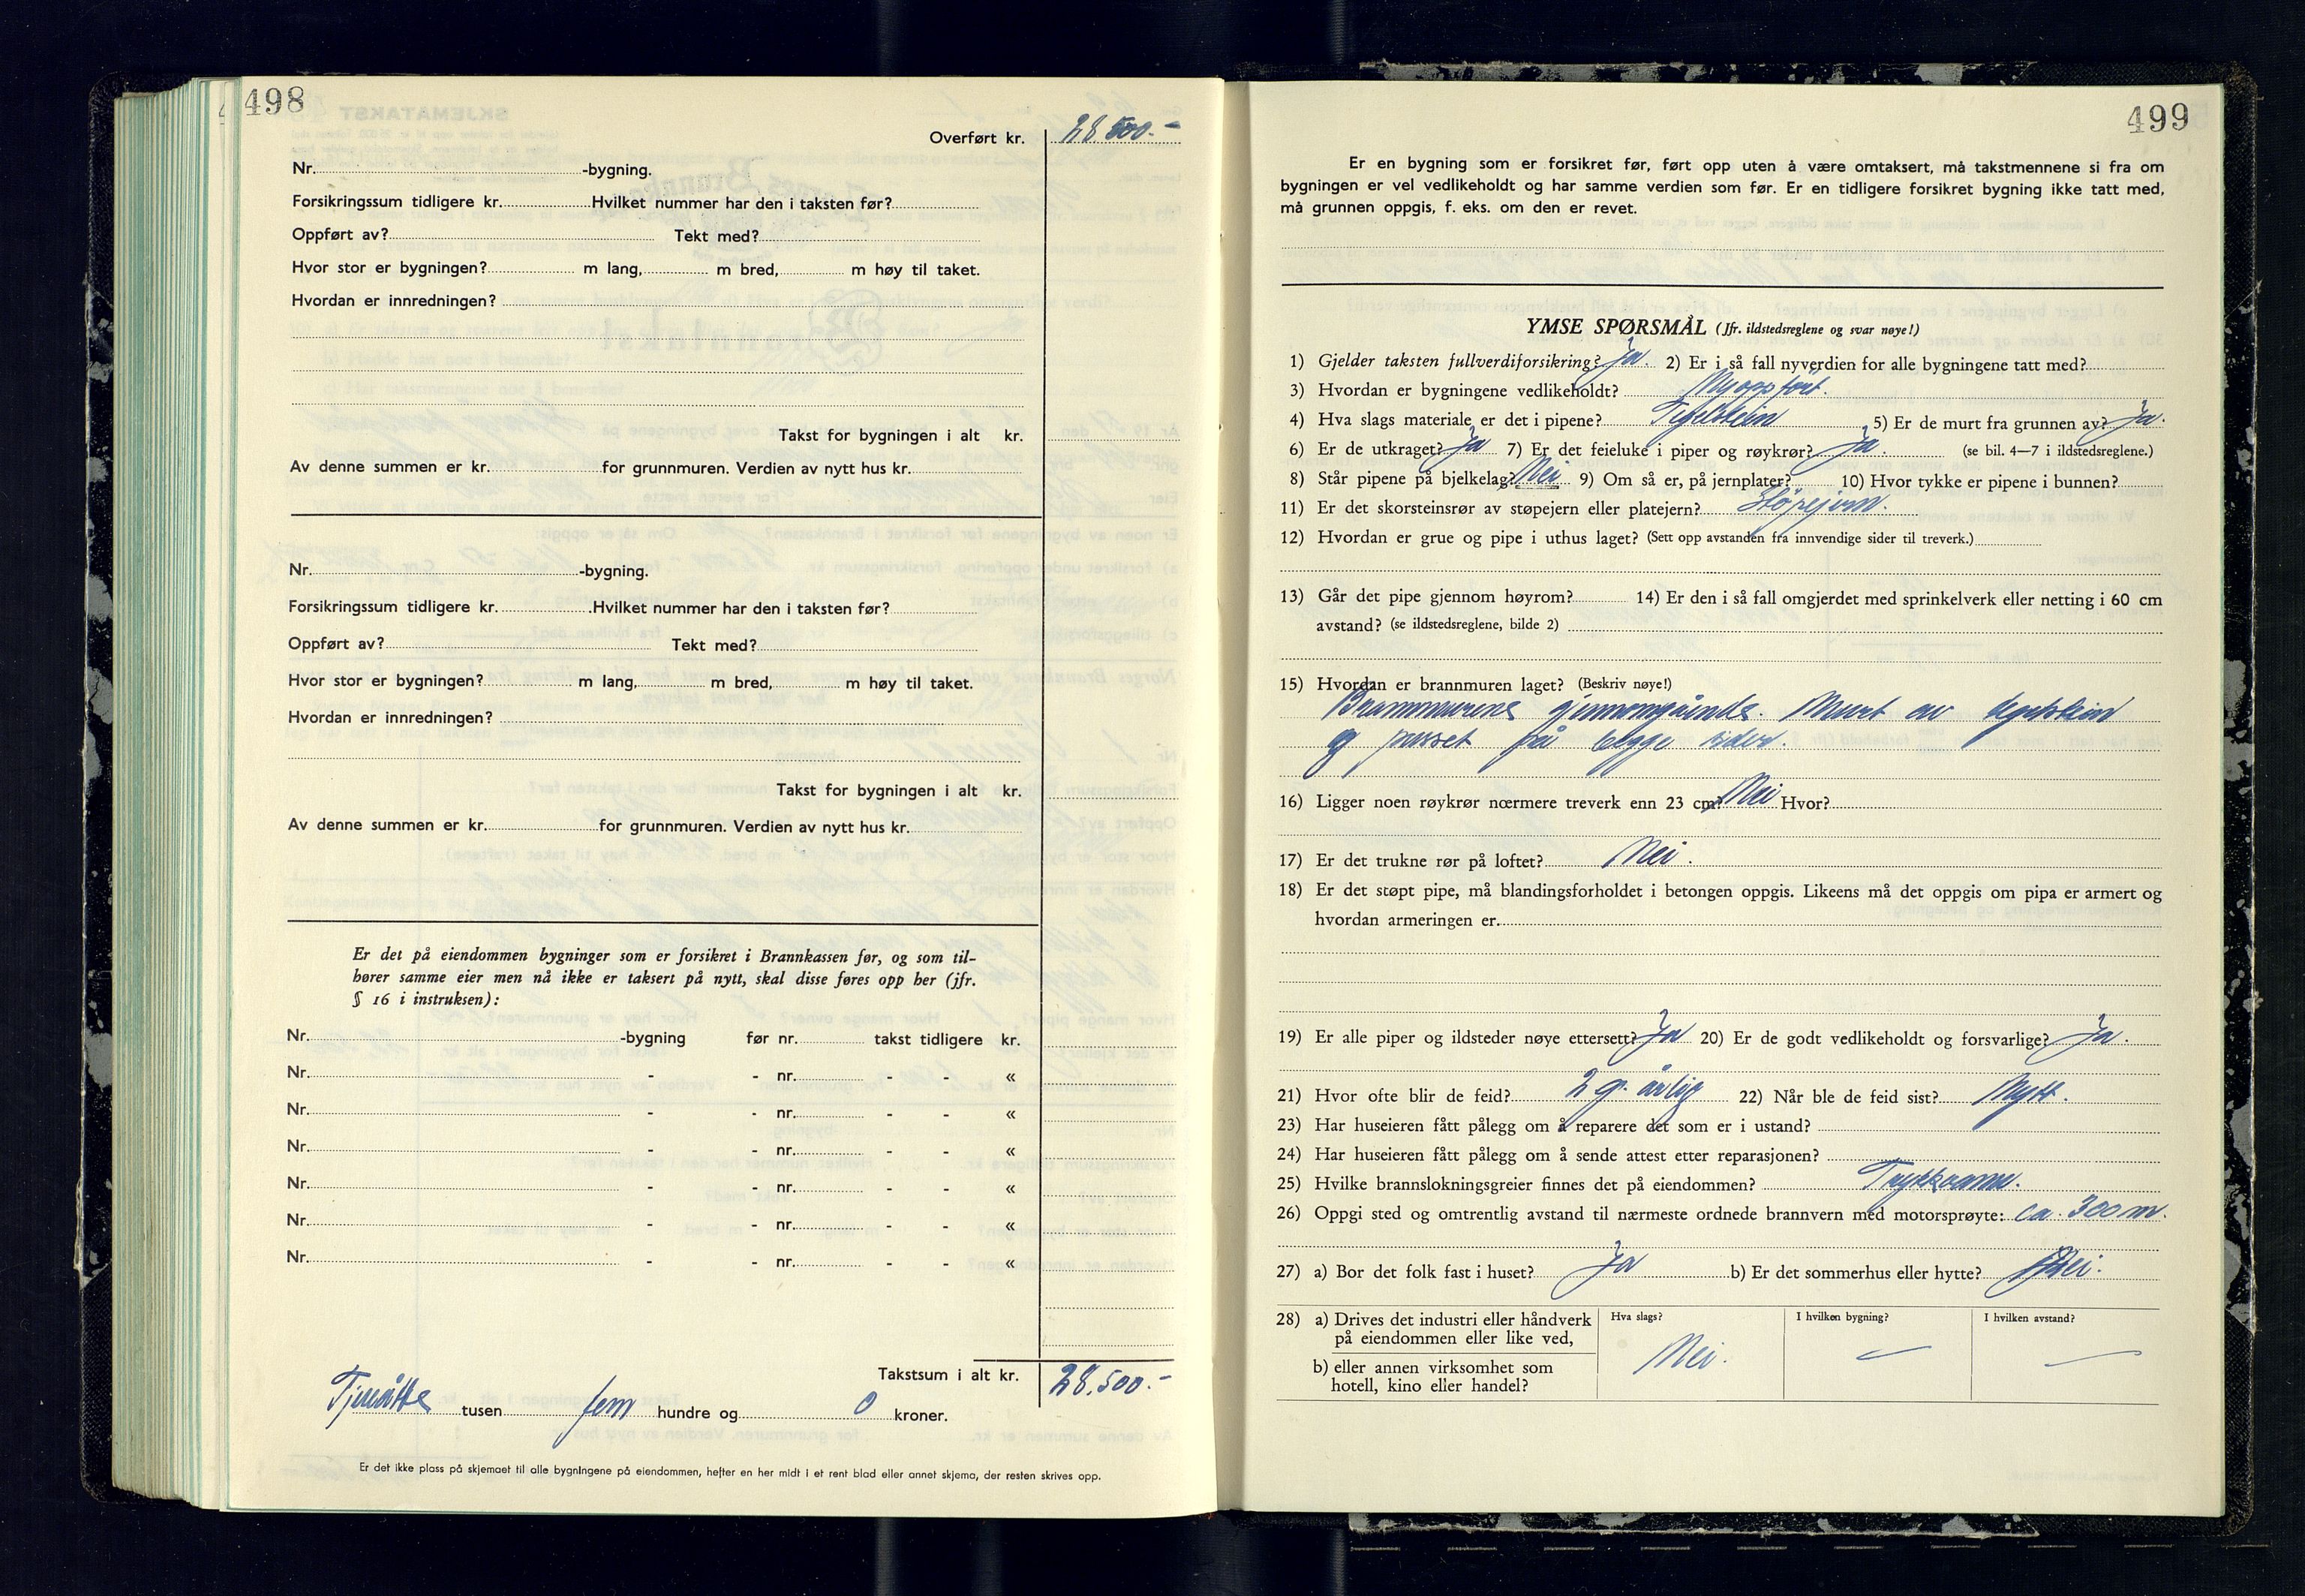 498
Overført kr. 28 500.-
Nr. -bygning.
Forsikringssum tidligere kr. Hvilket nummer har den i taksten før?
Oppført av? Tekt med?
Hvor stor er bygningen? m lang, m bred, m høy til taket.
Hvordan er innredningen?
Takst for bygningen i alt kr.
Av denne summen er kr. for grunnmuren. Verdien av nytt hus kr.
Nr. -bygning.
Forsikringssum tidligere kr. Hvilket nummer har den i taksten før?
Oppført av? Tekt med?
Hvor stor er bygningen? m lang, m bred, m høy til taket.
Hvordan er innredningen?
Takst for bygningen i alt kr.
Av denne summen er kr. for grunnmuren. Verdien av nytt hus kr.
Er det på eiendommen bygninger som er forsikret i Brannkassen før, og som til-
hører samme eier men nå ikke er taksert på nytt, skal disse føres opp her (jfr.
§ 16 i instruksen):
Nr. -bygning før nr. takst tidligere kr.
Nr. - - nr. - - «
Nr. - - nr. - - «
Nr. - - nr. - - «
Nr. - - nr. - - «
Nr. - - nr. - - «
Nr. - - nr. - - «
Takstsum i alt kr. 28.500.-
Tjueåtte tusen fem hundre og 0 kroner.
Er det ikke plass på skjemaet til alle bygningene på eiendommen, hefter en her midt i et rent blad eller annet skjema, der resten skrives opp.
499
Er en bygning som er forsikret før, ført opp uten å være omtaksert, må takstmennene si fra om
bygningen er vel vedlikeholdt og har samme verdien som før. Er en tidligere forsikret bygning ikke tatt med,
må grunnen oppgis, f. eks. om den er revet.
YMSE SPØRSMÅL (Jfr. ildstedsreglene og svar nøye!)
1) Gjelder taksten fullverdiforsikring? Ja. 2) Er i så fall nyverdien for alle bygningene tatt med?
3) Hvordan er bygningene vedlikeholdt? Nyoppført.
4) Hva slags materiale er det i pipene? Teglstein 5) Er de murt fra grunnen av? Ja.
6) Er de utkraget? Ja 7) Er det feieluke i piper og røykrør? Ja. (se bil. 4—7 i ildstedsreglene.)
8) Står pipene på bjelkelag? Nei 9) Om så er, på jernplater? 10) Hvor tykke er pipene i bunnen?
11) Er det skorsteinsrør av støpejern eller platejern? Støpejern.
12) Hvordan er grue og pipe i uthus laget? (Sett opp avstanden fra innvendige sider til treverk.)
13) Går det pipe gjennom høyrom? 14) Er den i så fall omgjerdet med sprinkelverk eller netting i 60 cm
avstand? (se ildstedsreglene, bilde 2)
15) Hvordan er brannmuren laget? (Beskriv nøye!)
Brannmurene gjennomgående. Murt av teglstein
og pusset på begge sider.
16) Ligger noen røykrør nærmere treverk enn 23 cm? Nei Hvor?
17) Er det trukne rør på loftet? Nei.
18) Er det støpt pipe, må blandingsforholdet i betongen oppgis. Likeens må det oppgis om pipa er armert og
hvordan armeringen er.
19) Er alle piper og ildsteder nøye ettersett? Ja 20) Er de godt vedlikeholdt og forsvarlige? Ja.
21) Hvor ofte blir de feid? 2 g. årlig 22) Når ble de feid sist? Nytt.
23) Har huseieren fått pålegg om å reparere det som er i ustand?
24) Har huseieren fått pålegg om å sende attest etter reparasjonen?
25) Hvilke brannslokningsgreier finnes det på eiendommen? Trykkvann.
26) Oppgi sted og omtrentlig avstand til nærmeste ordnede brannvern med motorsprøyte: ca. 300 m.
27) a) Bor det folk fast i huset? Ja b) Er det sommerhus eller hytte? Nei.
28) a) Drives det industri eller håndverk Hva slags? I hvilken bygning? I hvilken avstand?
på eiendommen eller like ved, Nei. — —
b) eller annen virksomhet som
hotell, kino eller handel?